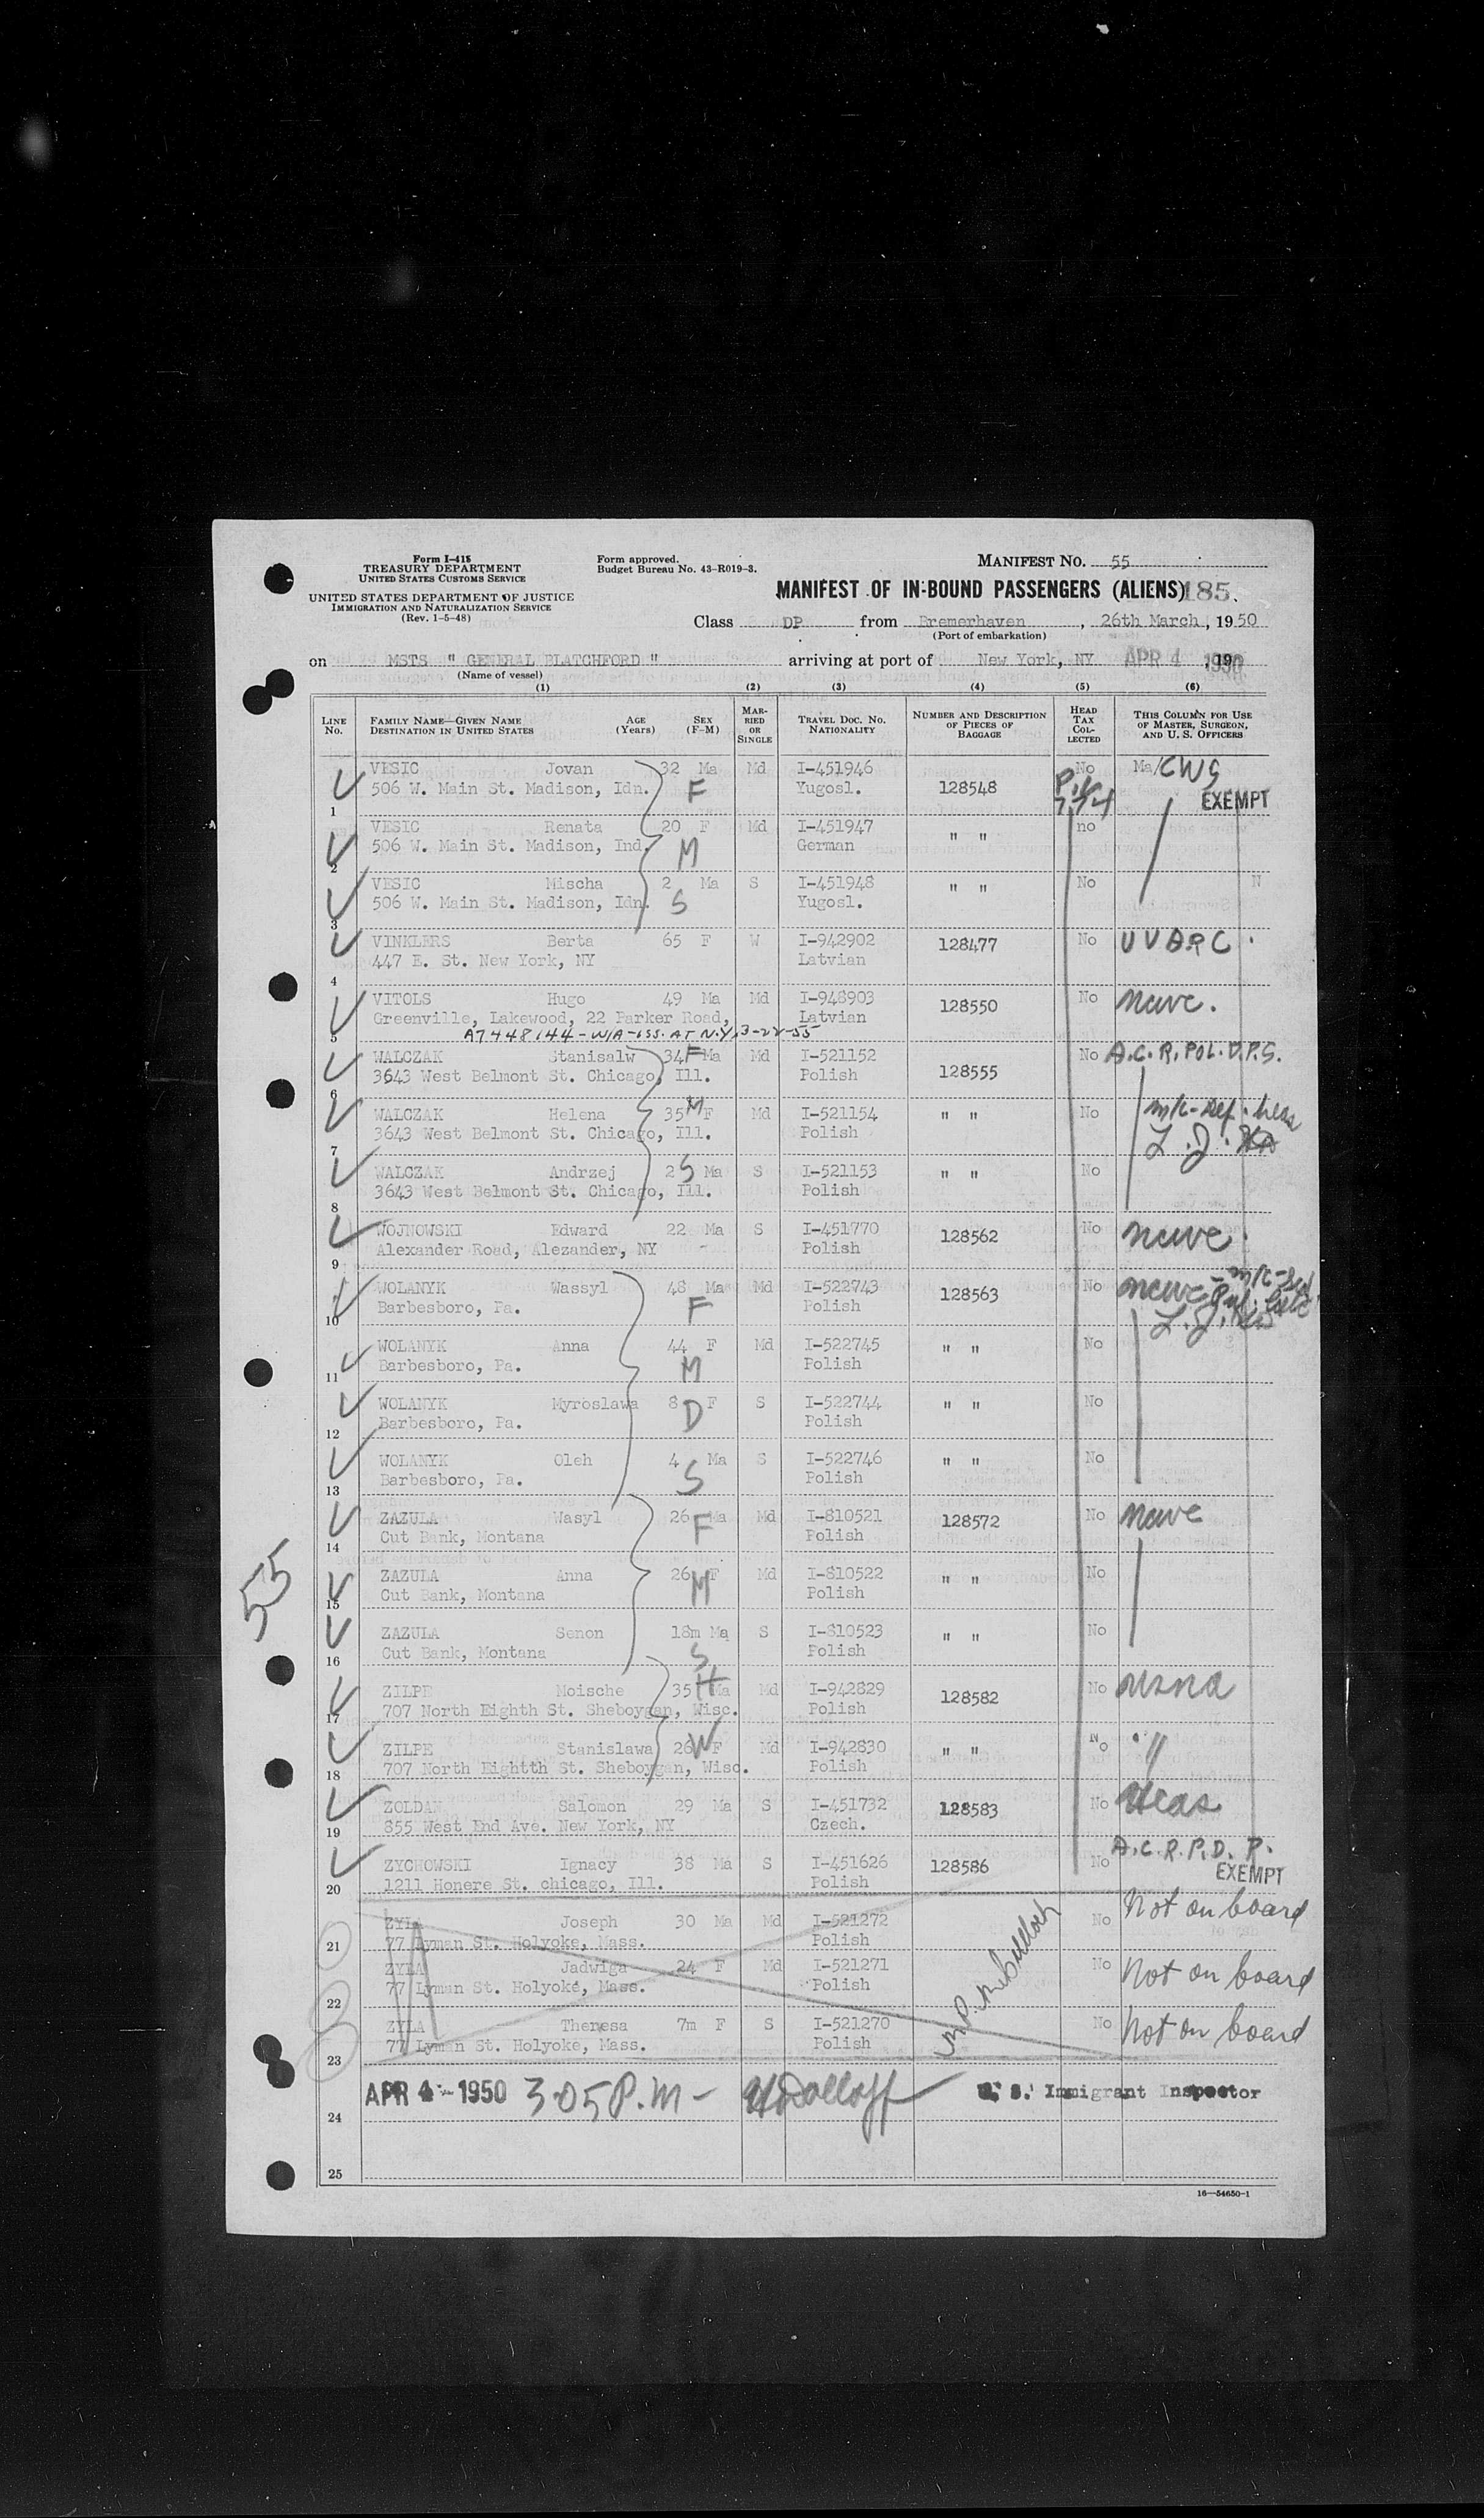 Form I-415
TREASURY DEPARTMENT
UNITED STATES CUSTOMS SERVICE
UNITED STATES DEPARTMENT OF JUSTICE
IMMIGRATION AND NATURALIZATION SERVICE
(Rev. 1-5-48)
Form approved.
Budget Bureau No. 43-R019-3.
MANIFEST NO. 55
MANIFEST OF IN-BOUND PASSENGERS (ALIENS) 185.
Class DP from Bremerhaven, 26th March, 1950
(Port of embarkation)
on MSTS " GENERAL BLATCHFORD " arriving at port of New York, NY APR 4 1950
(Name of vessel)
(1) (2) (3) (4) (5) (6)
LINE No. FAMILY NAME—GIVEN NAME DESTINATION IN UNITED STATES AGE (Years) SEX (F-M) MARRIED OR SINGLE TRAVEL DOC. NO. NATIONALITY NUMBER AND DESCRIPTION OF PIECES OF BAGGAGE HEAD TAX COLLECTED THIS COLUMN FOR USE OF MASTER, SURGEON, AND U. S. OFFICERS
VESIC Jovan 32 Ma Md I-451946 No Ma/CWS
1 506 W. Main St. Madison, Idn. F Yugosl. 128548 EXEMPT
VESIC Renata 20 F Md I-451947 " " no
2 506 W. Main St. Madison, Ind. M German
VESIC Mischa 2 Ma S I-451948 " " No N
3 506 W. Main St. Madison, Idn. S Yugosl.
VINKLERS Berta 65 F W I-942902 128477 No
4 447 E. St. New York, NY Latvian
VITOLS Hugo 49 Ma Md I-948903 128550 No
5 Greenville, Lakewood, 22 Parker Road, Latvian
A7448144-W/A-iss. AT N.Y. 3-22-55
WALCZAK Stanisalw 34 F Ma Md I-521152 No A.C.R. POL.D.P.S.
6 3643 West Belmont St. Chicago, Ill. Polish 128555
WALCZAK Helena 35 M F Md I-521154 " " No
7 3643 West Belmont St. Chicago, Ill. Polish
WALCZAK Andrzej 2 S Ma S I-521153 " " No
8 3643 West Belmont St. Chicago, Ill. Polish
WOJNOWSKI Edward 22 Ma S I-451770 128562 No
9 Alexander Road, Alezander, NY Polish
WOLANYK Wassyl 48 Ma Md I-522743 128563 No
10 Barbesboro, Pa. F Polish
WOLANYK Anna 44 F Md I-522745 " " No
11 Barbesboro, Pa. M Polish
WOLANYK Myroslawa 8 F S I-522744 " " No
12 Barbesboro, Pa. D Polish
WOLANYK Oleh 4 Ma S I-522746 " " No
13 Barbesboro, Pa. S Polish
ZAZULA Wasyl 26 F Ma Md I-810521 128572 No
14 Cut Bank, Montana Polish
ZAZULA Anna 26 M F Md I-810522 " " No
15 Cut Bank, Montana Polish
ZAZULA Senon 18m Ma S I-810523 " " No
16 Cut Bank, Montana S Polish
ZILPE Moische 35 H Ma Md I-942829 128582 No
17 707 North Eighth St. Sheboygan, Wisc. Polish
ZILPE Stanislawa 26 W F Md I-942830 " " No "
18 707 North Eightth St. Sheboygan, Wisc. Polish
ZOLDAN Salomon 29 Ma S I-451732 128583 No Hias
19 855 West End Ave. New York, NY Czech.
ZYCHOWSKI Ignacy 38 Ma S I-451626 128586 No A.C.R.P.D.P.
20 1211 Honere St. chicago, Ill. Polish EXEMPT
ZYLA Joseph 30 Ma Md I-521272 No Not on board
21 77 Lyman St. Holyoke, Mass. Polish
ZYLA Jadwiga 24 F Md I-521271 No Not on board
22 77 Lyman St. Holyoke, Mass. Polish
ZYLA Theresa 7m F S I-521270 No Not on board
23 77 Lyman St. Holyoke, Mass. Polish
24 APR 4 - 1950 3:05 P.M - U. S. Immigrant Inspector
25
55
16—54650-1